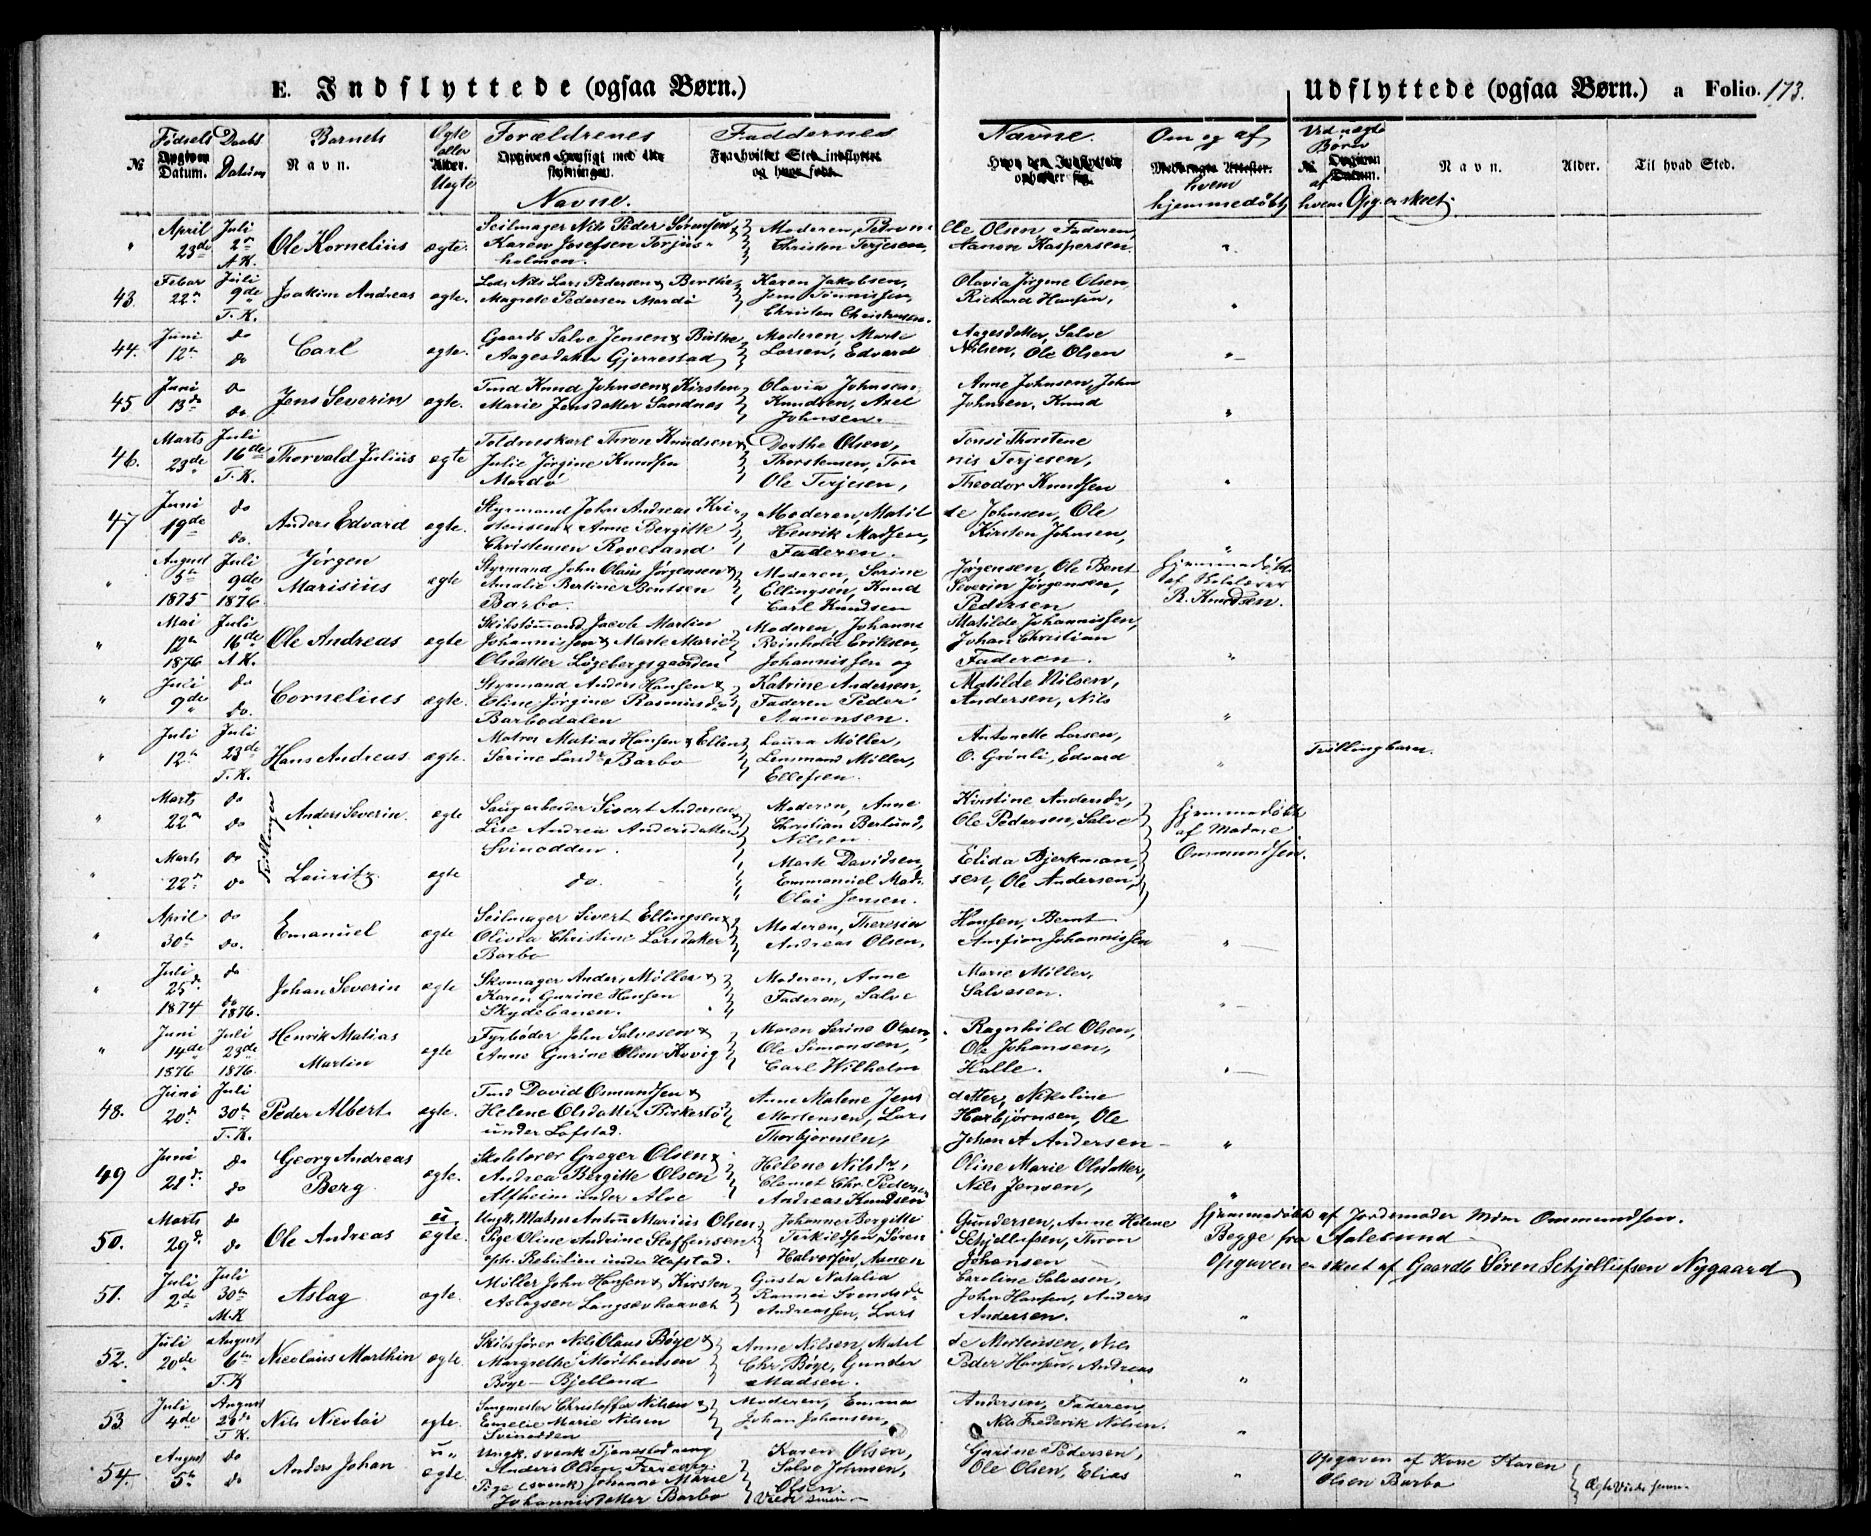 E. Indflyttede (ogsaa Børn.)
Udflyttede (ogsaa Børn.) a Folio. 173.
№ Fødsels Datum. Daabs Datum Barnets Navn. Ægte eller Uægte Forældrenes Navne. Faddernes Navne. Om og af hvem hjemmedøbt Ved uægte Børn af hvem Opg. er skeet.
№ Navn. Alder. Til hvad Sted.
" April 23de Juli 2n A.K. Ole Kornelius ægte. Seilmager Nils Peder Sørensen &
Karen Josefsen Torjus-
holmen.
Moderen, Petron elle Olsen, Faderen,
Christen Terjesen, Nanon Kaspersen
43. Febar 22n Juli 9de T.K. Joakim Andreas ægte. Lods Nils Lars Pedersen & Berthe
Magrete Pedersen Mardø
Karen Jakobsen, Olavia Jørgine Olsen,
Jens Tønnissen, Rickard Hansen,
Christen Christensen.
44. Juni 12te do do Carl ægte. Gaardb Salve Jensen & Birthe
Aagesdatter Gjerrestad
Moderen, Marte Aagesdatter, Salve
Larsen, Edvard Nilsen, Ole Olsen
45 Juni 13de do do. Jens Severin ægte. Tmd Knud Johnsen & Kirsten
Marie Jensdatter Sandnæs
Olavia Johnsen, Anne Johnsen, John
Knudsen, Axel Johnsen, Knud
Johnsen.
46. Marts 23de Juli 16de T.K. Thorvald Julius ægte Toldroeskarl Thron Knudsen &
Julie Jørgine Knudsen
Mardø
Dorthe Olsen, Tomsi Thorstene
Thorstensen, Ton nis Terjesen,
Ole Terjesen, Theodor Knudsen
47 Juni 19de do do. Anders Edvard ægte. Styrmand John Andreas Kri-
stensen & Anne Bergitte
Christensen Roveland
Moderen, Matil de Johnsen, Ole
Henrik Madsen, Kirsten Johnsen,
Faderen.
" August 5te 1875 Juli 9de 1876. Jørgen Marisius ægte Styrmand John Olaus Jørgensen &
Amalie Bertine Bentsen
Barbo.
Moderen, Serine Jørgensen, Ole Bent
Ellingsen, Knud Severin Jørgensen,
Carl Knudsen Pedersen
Hjemmedøbt af Holderer R. Knudsen.
" Mai 12te 1876 Juli 16de A.K. Ole Andreas ægte Skibstømmand Jacob Martin
Johannissen & Marte Marie
Olsdatter Løgebergsgaarden
Moderen, Johanne Matilde Johannissen,
Reinhold Eriksen, Johan Christian
Johannissen og Faderen.
" Juli 9de do do. Cornelius ægte. Styrmand Anders Hansen &
Eline Jørgine Rasmussen
Barbodalen
Katrine Andersen, Matilde Nilsen,
Faderen Peder Andersen, Nils
Aanonsen.
" Juli 12te Juli 23de T.K. Hans Andreas ægte. Matros Matias Hansen & Ellen
Serine Larsdr Barbo
Laura Møller, Antonette Larsen,
Lensmand Møller, O. Grønli, Edvard
Ellefsen. Trillingbarn.
" Marts 22n do do Tvillinger Anders Severin. ægte Saugarbeider Sivert Andersen &
Lise Andrea Andersdatter
Svinodden.
Moderen, Anne Kirstine Andersdr,
Christian Berlund, Ole Pedersen, Salve
Nilsen
Hjemmedøbt af Madme Ommundsen.
" Marts 22n do do Lauritz ægte do.
Marte Davidsen, Elida Bjerkman,
Emmanuel Mad- sen, Ole Andersen,
Olai Jensen.
" April 30te do do. Emanuel ægte Seilmager Sivert Ellingsen &
Olivia Christine Larsdatter
Barbo
Moderen, Theresia Hansen, Bernt
Andreas Olsen, Amfion Johannissen
" Juli 25de 1874 do do 1876. Johan Severin ægte Skomager Anders Møller &
Karen Gurine Hansen
Skydebanen.
Moderen, Anne Marie Møller,
Faderen, Salve Salvesen.
" Juni 14de 1876 Juli 23de 1876. Henrik Matias Martin ægte Fyrbøder John Salvesen &
Anne Gurine Olsen Kovig
Maren Serine Olsen, Ragnhild Olsen,
Ole Simonsen, Ole Johansen,
Carl Wilhelm Halle.
48. Juni 20de Juli 30te T.K. Peder Albert ægte. Tmd David Osmundsen &
Helene Olsdatter Birkestø
under Løfstad.
Anne Malene Jens datter, Nikoline
Mortensen, Lars Horbjørnsen, Ole
Thorbjørnsen, Johan A Andersen
49 Juni 21de do do Georg Andreas Berg ægte. Skolelærer Greger Olsen &
Andrea Bergitte Olsen
Alfheim under Alve
Helene Nilsdr, Oline Marie Olsdatter,
Clemet Chr. Pedersen Nils Jensen,
Andreas Knudsen
50. Marts 29de do do Ole Andreas uægte. Ungk. Matros Anton Marius Olsen,
Pige Oline Andrine Steffensen
Johanne Bergitte Gundersen, Anne Helene
Terkildsen, Søren Schjellefsen, Thron
Halvorsen, Aanon Johansen
Hjemmedøbt af Jordemoder Mdm Ommundsen.
Begge fra Aalesund
Opgaven er skeet af Gaardb Søren Schjellefsen Nygaard
51. Juli 2de Juli 30te M.K Aslag ægte. Møller John Hansen & Kirsten
Aslagsen Langsævhaavet
Gusta Natalia Caroline Salvesen,
Rannei Svendsdr John Hansen, Anders
Andreassen, Lars Andersen.
52. Juli 20de August 6te T.K Nicolaus Marthin ægte. Skibsfører Nils Olaus Bøye &
Margrethe Marthensen
Bøye - Bjelland
Anne Nilsen, Matil de Mortensen, Nils
Chr. Bøye, Gunder Peder Hansen, Andreas
Madsen.
53. Juli 4de August 20de T.K. Nils Nicolai ægte. Saugmester Christoffer Nilsen &
Emelie Marie Nilsen
Svinodden
Moderen, Emma Andersen, Faderen,
Johan Johansen, Nils Frederik Nilsen.
54. August 5te do do Anders Johan uægte Ungk. svensk
Anders Olsen,
Pige (svensk) Johanne Marie
Johannisdatter Barbo
Karen Olsen, Gurine Pedersen,
Salve Johnsen, Ole Olsen, Elias
Olsen.
Opgaven af Kone Karen
Olsen Barbo